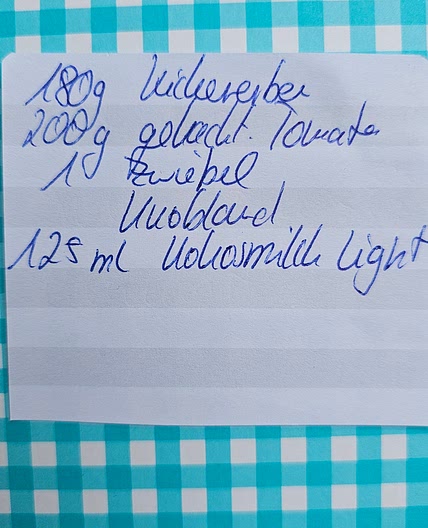 180g Kichererbsen
200g gehackt. Tomaten
1 Zwiebel
Knoblauch
125 ml Kokosmilch light